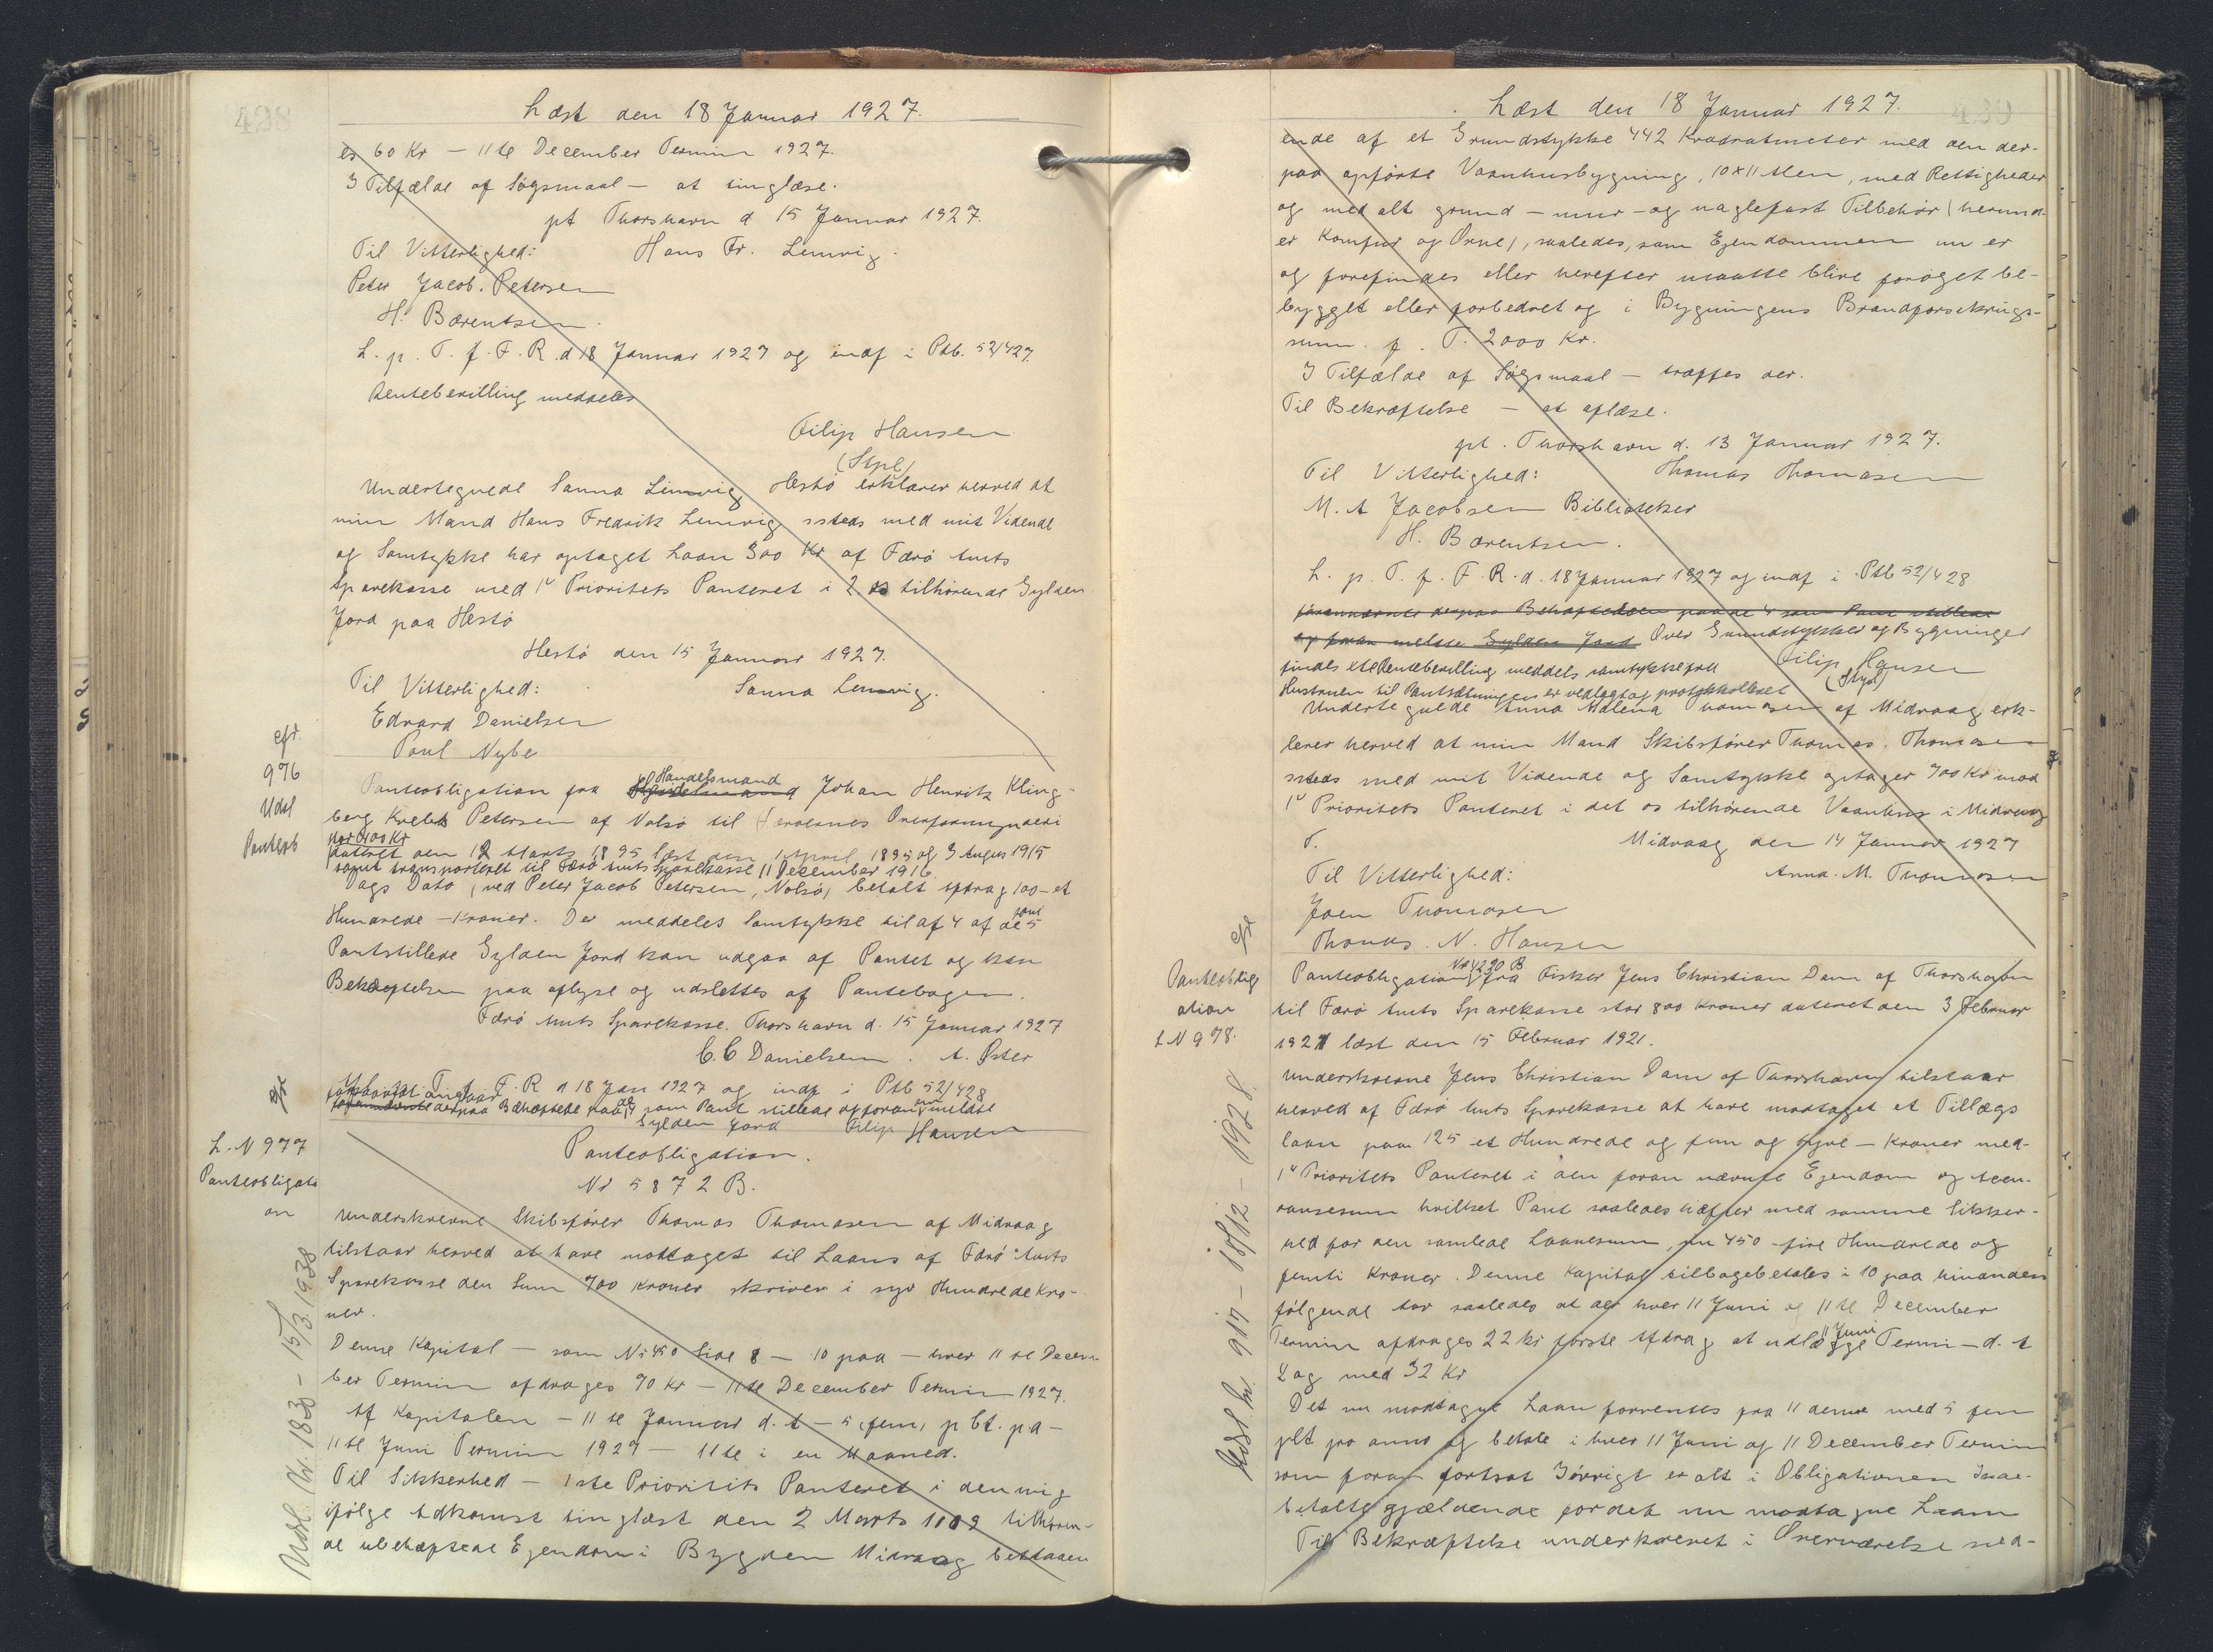 428
Læst den 18 Januar 1927.
er 60 Kr — 11te December Termin 1927.
I Tilfælde af Søgsmaal — at tinglæse.
pt Thorshavn d 15 Januar 1927.
Til Vitterlighed: Hans Fr. Lemvig.
Peter Jacob. Petersen
H. Bærentsen.
L. p. T. f. F. R. d 18 Januar 1927 og indf i Ptb. 52/427.
Rentebevilling meddeles
Filip Hansen
(Stpl)
Undertegnede Sanna Lemvig Hestø erklærer herved at
min Mand Hans Fredrik Lemvig ssteds med mit Vidende
og Samtykke har optaget Laan 300 Kr af Færø Amts
Sparekasse med 1ste Prioritets Panteret i 2 os tilhørende Gylden
Jord paa Hestø
Hestø den 15 Januar 1927.
Til Vitterlighed: Sanna Lemvig.
Edvard Danielsen
Poul Nybe
efr.
976
Udsl
Panteob
Panteobligation fra Handelsmand Johan Henrik Kling-
berg Petersen af Nolsø til Færøernes Overformynderi
stor 400 Kr
dateret den 12 Marts 1895 læst den 1 April 1895 og 3 Augus 1915
samt transporteret til Færø Amts Sparekasse 11 December 1916
Dags Dato (ved Peter Jacob Petersen, Nolsø) betalt Afdrag 100 – et
Hundrede – Kroner. Der meddeles Samtykke til af 4 af de som 5
Pantstillede Gylden Jord kan udgaa af Pantet og kan
Behæftelsen paa aflyse og udslettes af Pantebogen.
Færø Amts Sparekasse. Thorshavn d. 15 Januar 1927
C. C Danielsen. A. Øster
F. R d 18 Jan 1927 og indf i Ptb 52/428
derpaa Behæftelse paa de 4 som Pant stillede af foran meldte
Gylden Jord Filip Hansen
efr
L. N 977
Panteobligati
on
Panteobligation.
Nr 5872 B.
Underskrevne Skibsfører Thomas Thomasen af Midvaag
tilstaar herved at have modtaget til Laans af Færø Amts
Sparekasse den Sum 700 Kroner skriver i syv Hundrede Kro-
ner.
Denne Kapital — som Nr 450 Side 8 — 10 paa — hver 11 te Decem-
ber Termin afdrages 70 Kr — 11te December Termin 1927.
Af Kapitalen — 11 te Januar d. A — 5 (fem) p Ct. p a —
11te Juni Termin 1927 — 11te i en Maaned.
Til Sikkerhed — 1ste Prioritets Panteret i den mig
ifølge Adkomst tinglæst den 2 Marts 1909 tilhøren-
de ubehæftede Ejendom i Bygden Midvaag bestaaen
Udsl. Nr. 183 – 15/3 1938
Læst den 18 Januar 1927.
ende af et Grundstykke 442 Kvadratmeter med den der-
paa opførte Vaanhusbygning, 10 x 11 Alen, med Rettigheder
og med alt grund – mur – og naglefast Tilbehør (herund-
er Komfur og Ovne), saaledes, som Ejendommen nu er
og forefindes eller herefter maatte blive forøget be-
bygget eller forbedret og i Bygningens Brandforsikrings-
sum. f. T. 2000 Kr.
I Tilfælde af Søgsmaal — træffes der.
Til Bekræftelse — at aflæse.
pt. Thorshavn d. 13 Januar 1927.
Til Vitterlighed: Thomas Thomasen
M. A Jacobsen Biblioteker
H. Bærentsen.
L. p. T. f. F. R. d. 18 Januar 1927 og indf i Ptb 52/428
Over Grundstykket og Bygninger
findes Rentebevilling meddels samtykke fra Filip Hansen
Hustruen til Pantsætningen er vedlagt og protokolleret (Stpl)
Undertegnede Anna Malena Thomasen af Midvaag erk-
lærer herved at min Mand Skibsfører Thomas. Thomasen
ssteds med mit Vidende og Samtykke optager 700 Kr mod
1ste Prioritets Panteret i det os tilhørende Vaanhus i Midvaag
T. Midvaag den 14 Januar 1927
Til Vitterlighed: Anna. M. Thomasen
Joen Thomasen
Thomas. N. Hansen
efr
Panteoblig
ation
L N 978.
Panteobligation Nr 4290 B fra Fisker Jens Christian Dam af Thorshavn
til Færø Amts Sparekasse stor 800 Kroner dateret den 3 Februar
1921 læst den 15 Februar 1921.
Underskrevne Jens Christian Dam af Thorshavn tilstaar
herved af Færø Amts Sparekasse at have modtaget et Tillægs
laan paa 125 et Hundrede og fem og tyve — Kroner med
1ste Prioritets Panteret i den foran nævnte Ejendom og Assu-
rancesum hvilket Pant saaledes hæfter med samme Sikker-
hed for den samlede Laanesum, nu 450 – fire Hundrede og
femti Kroner. Denne Kapital tilbagebetales i 10 paa hinanden
følgende Aar saaledes at der hver 11 Juni og 11 te December
Termin afdrages 22 Kr første Afdrag at udlægge 11 Juni Termi — d. A
Dog med 32 Kr
Det nu modtagne Laan forrentes fra 11 denne med 5 fem
pCt pro anno og betale i hver 11 Juni og 11 December Termin
som foran fortsat Iøvrigt er alt i Obligationen
gjældende for det nu modtagne Laan
Til Bekræftelse underskrevet i Overværelse ned-
Udsl. Nr. 917 – 18/12 – 1928.